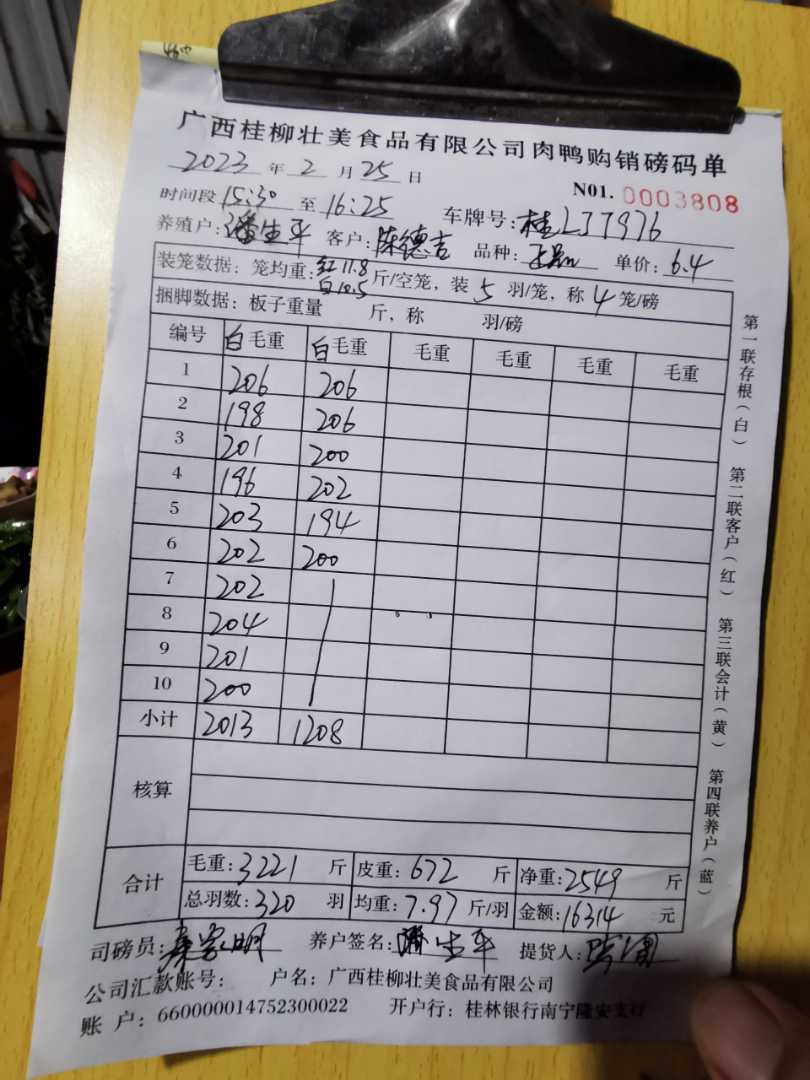 广西桂柳壮美食品有限公司肉鸭购销磅码单
2023 年 2 月 25 日
N01. 0003808
时间段 15:30 至 16:25 车牌号: 桂LJ7976
养殖户: 潘生平 客户: 陈德吉 品种: 单价: 6.4
装笼数据: 笼均重: 红11.8 白10.5 斤/空笼, 装 5 羽/笼, 称 4 笼/磅
捆脚数据: 板子重量 斤, 称 羽/磅
编号 白毛重 白毛重 毛重 毛重 毛重 毛重
1 206 206
2 198 206
3 201 200
4 196 202
5 203 194
6 202 200
7 202
8 204
9 201
10 200
小计 2013 1208
核算
合计
毛重: 3221 斤 皮重: 672 斤 净重: 2549 斤
总羽数: 320 羽 均重: 7.97 斤/羽 金额: 16314 元
司磅员: 养户签名: 潘生平 提货人:
公司汇款账号: 户名: 广西桂柳壮美食品有限公司
账 户: 660000014752300022 开户行: 桂林银行南宁隆安支行
第一联存根(白) 第二联客户(红) 第三联会计(黄) 第四联养户(蓝)